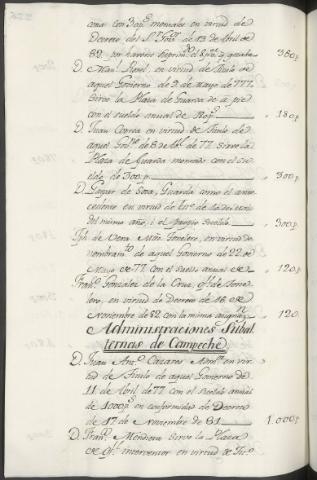 oma con 30p.s mensales en virtud de
Decreto del S.r Gob.r de 13 de Abril de
82. por haverse suprim.do el q.e se le 360p.
D. Man.l Roxil, en virtud de Titulo de
aquel Govierno de 9. de Mayo de 777.
sirve la Plaza de Guarda de a pie
con el sueldo anual de 180p. 180p.
D. Juan Correa en virtud de Titulo de
aquel Gov.no de 8 de de 77. sirve la
Plaza de Guarda montado con el su-
eldo de 300.p. 300p.
D. Gaspar de Sosa, Guarda como el ante-
cedente en virtud de
del mismo año, i el proprio sueldo. 300p.
Jph. de Vera Tonelero, en virtud de
nombram.to de aquel Govierno de 22 de
Mayo de 77. con el sueldo anual de 120p.
Fran.co Gonzalez de la Cruz, of.l de Tone-
lero, en virtud de Decreto de 16 de
Noviembre de 82 con la misma asign.n 120.
Administraciones Subal-
ternas de Campeche
D. Juan Ant.o Cazares Adm.or en vir-
tud de Titulo de aquel Govierno de
11 de Abril de 77 con el sueldo anual
de 1000p.s en conformidad de Decreto
de 17 de Noviembre de 81 1.000p.
D. Fran.co Mendiera sirve la Plaza
de Of.l interventor en virtud de Titu-